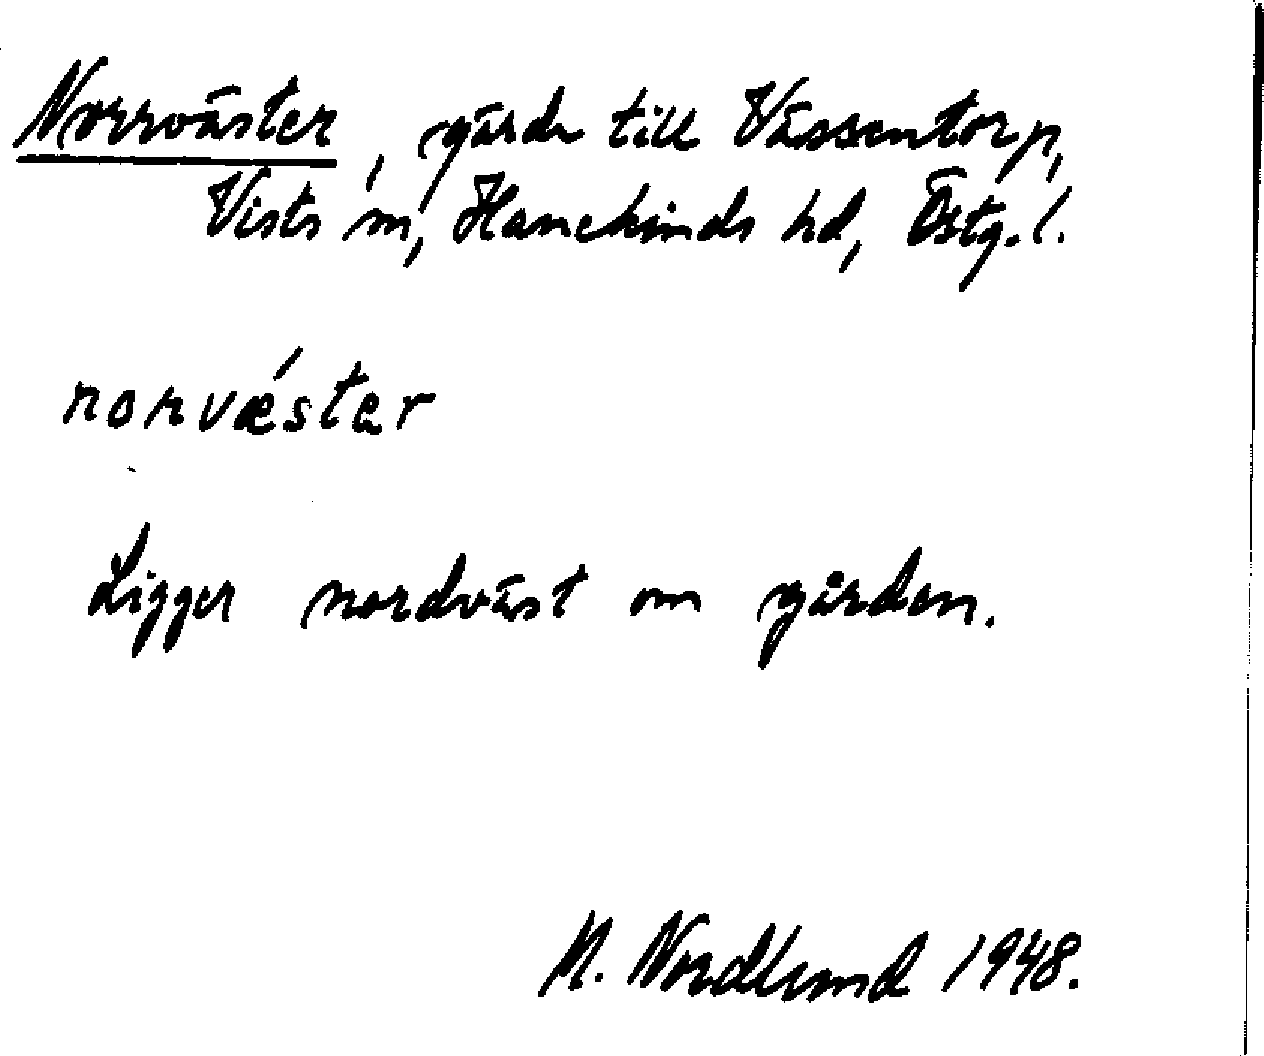 Norrväster, gärde till Vässentorp,
Vists sn, Hanekinds hd, Östg. l.
norvǽstər
Ligger nordväst om gården.
M. Nordlund 1948.